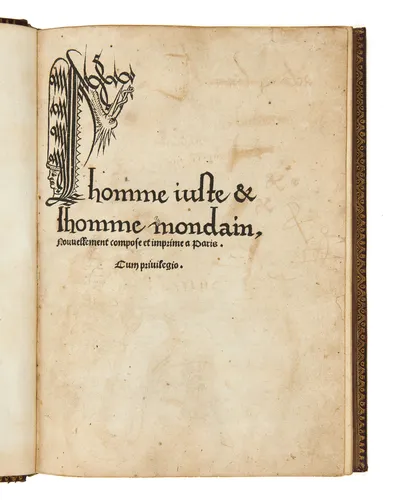 Lhomme iuste &
lhomme mondain,
Nouvellement compose et imprime a Paris.
Cum privilegio.